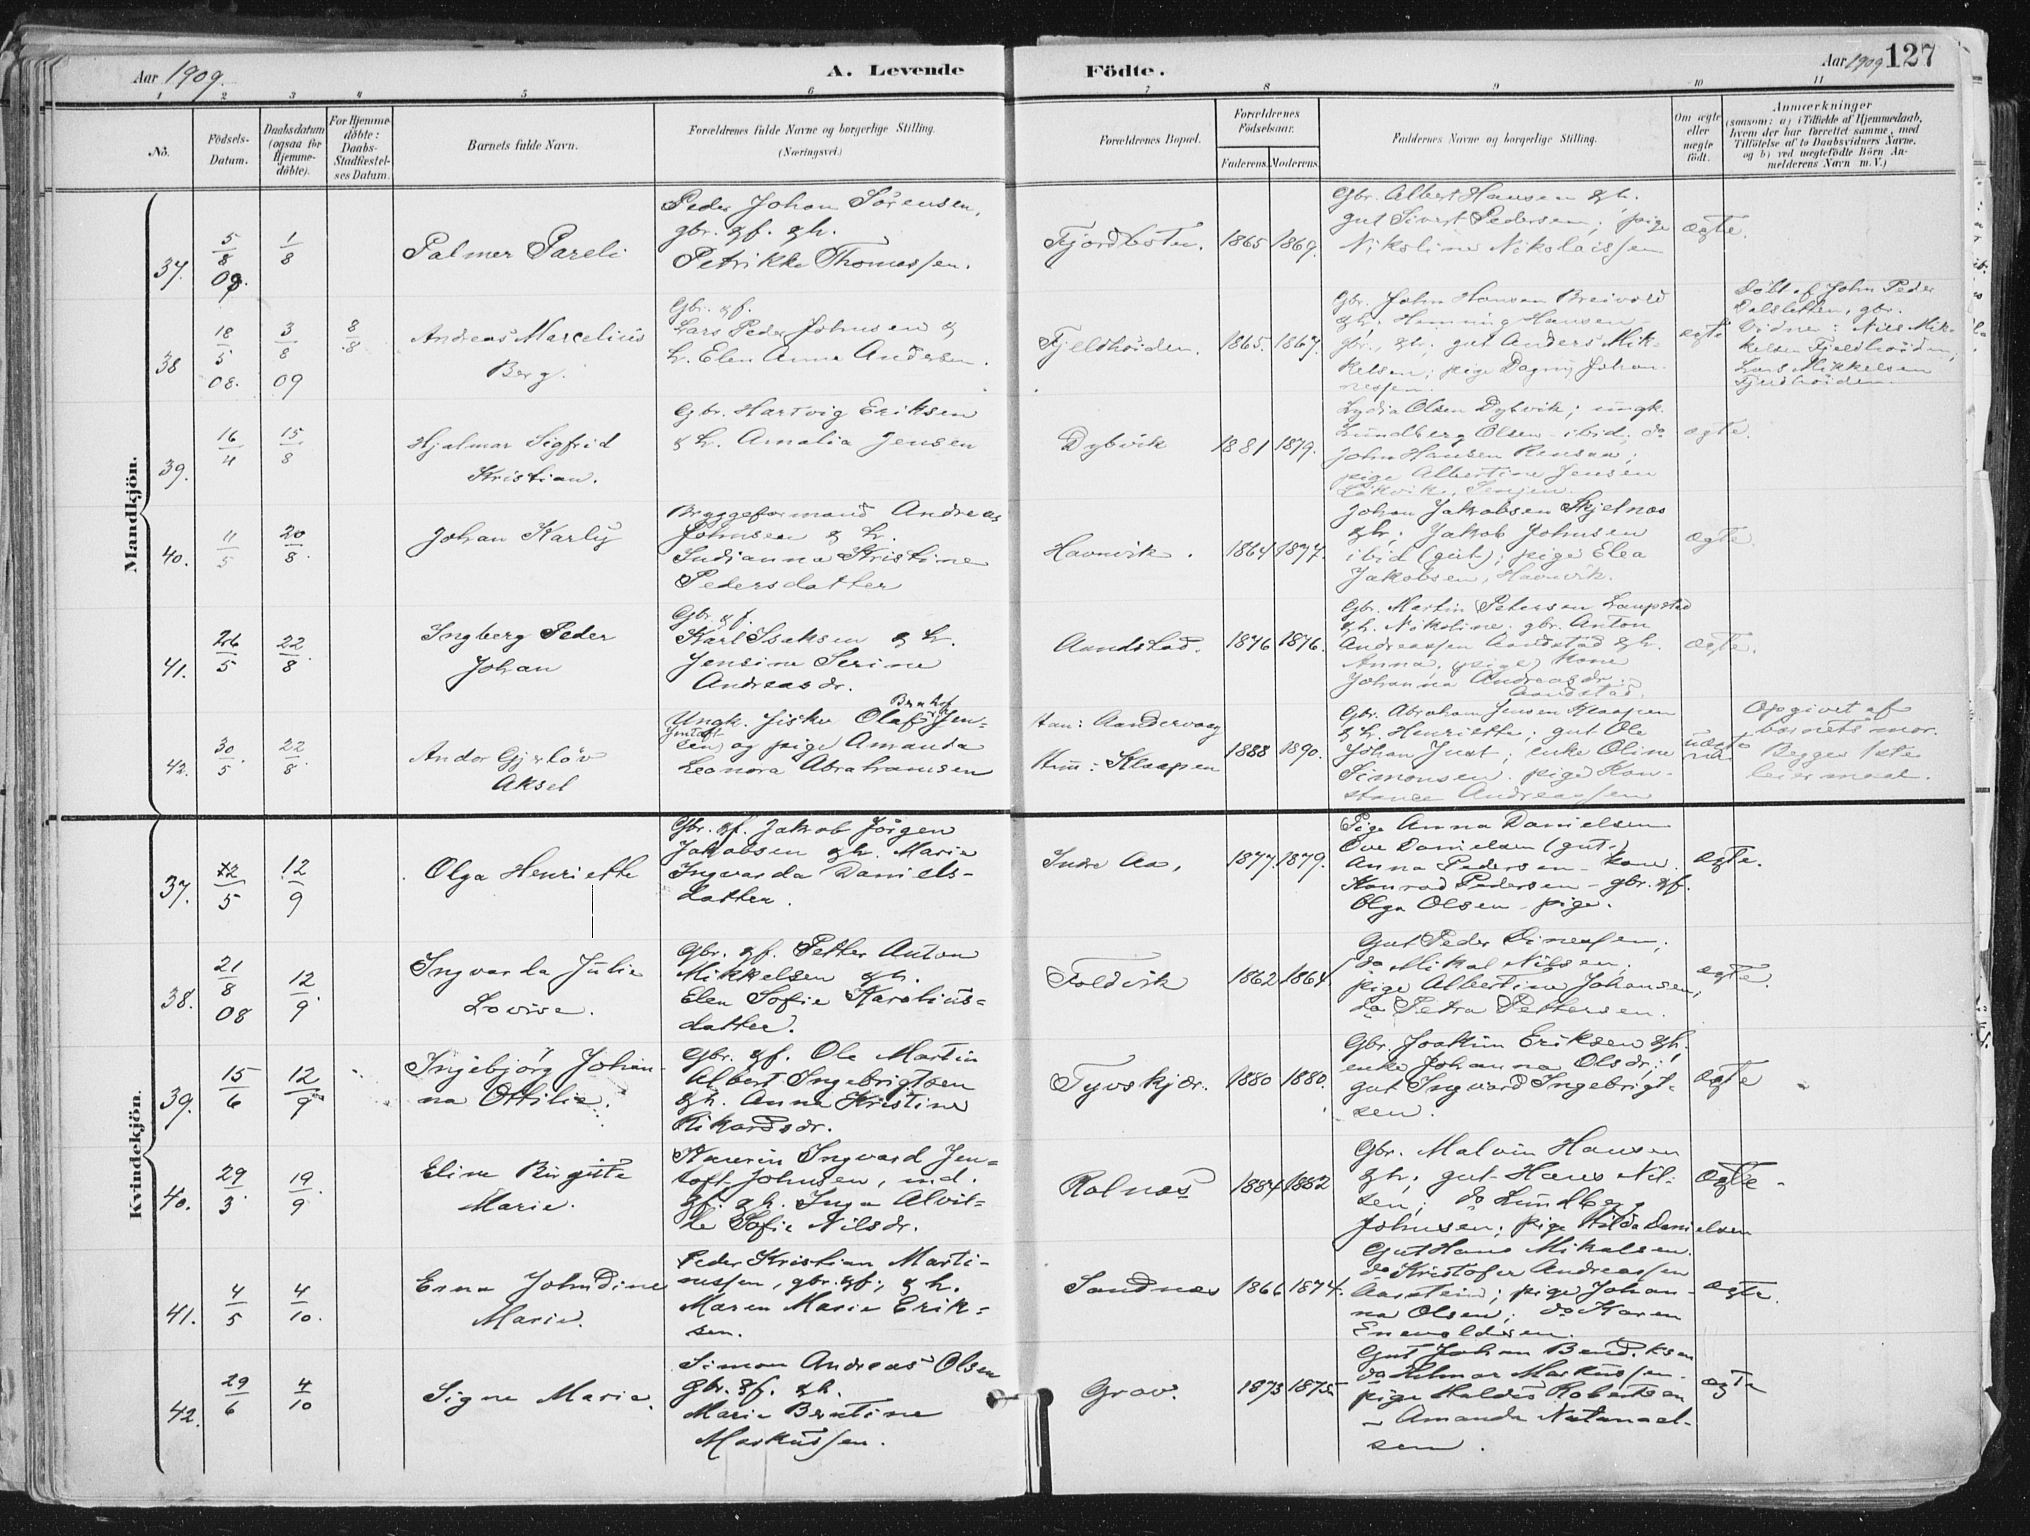 Aar 1909.
A. Levende
Födte.
Aar 1909
127
1 2 3 4 5 6 7 8 9 10 11
No.
Födsels-
Datum.
Daabsdatum
(ogsaa for
Hjemme-
döbte).
For Hjemme-
döbte:
Daabs-
Stadfæstel-
ses Datum.
Barnets fulde Navn.
Forældrenes fulde Navne og borgerlige Stilling.
(Næringsvei.)
Forældrenes Bopæl.
Forældrenes
Födselsaar.
Faderens. Moderens.
Faddernes Navne og borgerlige Stilling.
Om ægte
eller
uægte
født.
Anmærkninger
(saasom: a) i Tilfælde af Hjemmedaab,
hvem der har forrettet samme, med
Tilföielse af to Daabsvidners Navne,
og b) ved uægtefödte Börn An-
melderens Navn m. V.)
Mandkjön.
37.
5/8 09.
1/8
Palmer Pareli
Peder Johan Sørensen,
gbr. & f. & h.
Petrikke Thomassen.
1865 1869.
Gbr. Albert Hansen & h.
gut Sivert Pedersen; pige
Nikoline Nikolaissen
ægte.
38
18/5 08.
3/8 09
8/8
Andreas Marcelius
Berg.
Gbr. & f.
Lars Peder Johnsen &
h. Elen Anna Andersen.
Fjeldhöiden.
1865. 1867.
Gbr. John Hansen Breivold
& h. Henning Hansen
gbr., & h. gut Anders Mik-
kelsen; pige Dagny Johan-
nessen.
ægte
Döbt af John Peder
Dalsletten, gbr.
Vidner: Nils Mik-
kelsen Fjeldhöiden,
Lars Mikkelsen
Fjeldhöiden.
39.
16/4
15/8
Hjalmar Sigfrid
Kristian.
Gbr. Hartvig Eriksen
& h. Amalia Jensen
Dybvik
1881 1879.
Lydia Olsen Dybvik; ungk.
Lundberg Olsen ibid; do
John Hansen Rensaa;
pige Albertine Jensen
Senjen.
ægte.
40.
11/5
20/8
Johan Karly
Bryggeformand Andreas
Johnsen & h.
Indianna Kristine
Pedersdatter
Havnvik.
1864 1877.
Johan Jakobsen Skjelnæs
& h; Jakob Johnsen
ibid (gut); pige Elea
Jakobsen, Havnvik.
ægte.
41.
26/5
22/8
Ingberg Peder
Johan
Gbr. & f.
Karl Isaksen & h.
Jensine Serine
Andreasdr.
Aandstad.
1876 1876.
Gbr. Martin Petersen Laupstad
& h. Nikoline. gbr. Anton
Andreassen Aandstad & h.
Anna, (pige) Kone
Johanna Andreasdr.
Aandstad.
ægte.
42.
30/5
22/8
Andor Gjerløv
Aksel
Ungk. fisker Olaf Jen-
sen og pige Amanda
Leonora Abrahamsen
han: Aandervaag
hun: Klaapen
1888 1890.
Gbr. Abraham Jensen Klaapen
& h. Henriette; gut Ole
Johan Just; enke Oline
Simonsen. pige Kon-
stance Andreassen
Opgivet af
barnets mor.
Begges 1ste
leiermaal.
Kvindekjön.
37.
5
12/9
Olga Henriette
Gbr. & f. Jakob Jörgen
Jakobsen & h. Marie
Ingvarda Daniels-
datter.
Indre Aa,
1877. 1879.
Pige Anna Danielsen
Ove Danielsen (gut.)
Anna Pedersen - kone.
Konrad Pedersen - gbr. & f.
Olga Olsen - pige.
ægte.
38.
21/8 08
12/9
Ingvarda Julie
Lovise.
Gbr. & f. Petter Anton
Mikkelsen & h.
Elen Sofie Karolius-
datter.
Foldvik
1862 1864
Gut Peder Dinessen;
do Mikal Nilsen;
pige Albertine Johansen,
do Petra Pettersen.
ægte.
39.
15/6
12/9
Ingebjørg Johan-
na Ottilie.
Gbr. & f. Ole Martin
Albert Ingebrigtsen
& h. Anna Kristine
Rikardsdr.
Tyvskjær.
1880 1880.
Gbr. Joakim Eriksen & h.
enke Johanna Olsdr;
gut Ingvard Ingebrigt-
sen.
ægte
40.
29/3
19/9
Eline Birgitte
Marie.
Kaurin Ingvard Jen-
toft Johnsen, ind.
& f. & h. Inga Alvil-
de Sofie Nilsdr.
Rolnæs
1884 1882
Gbr. Malvin Hansen
& h; gut Hans Nil-
sen; do Lundberg
Johnsen; pige Hilda Danielsen
ægte.
41.
4/5
4/10.
Erna Johndine
Marie.
Peder Kristian Marti-
nussen, gbr. & f., & h.
Maren Marie Erik-
sen.
Sandnes
1866 1874.
Gut Hans Mikalsen.
do Kristofer Andreassen
Aarstein; pige Johan-
na Olsen; do Karen
Enevoldsen.
ægte.
42.
29/6
4/10
Signe Marie.
Simon Andreas Olsen
Gbr. & f. & h.
Marie Berntine
Markussen.
Grov.
1873 1875
Gut Johan Bendiksen
do Hilmar Markussen.
pige Haldis Robertsen
- Amanda Natanael-
sen.
ægte